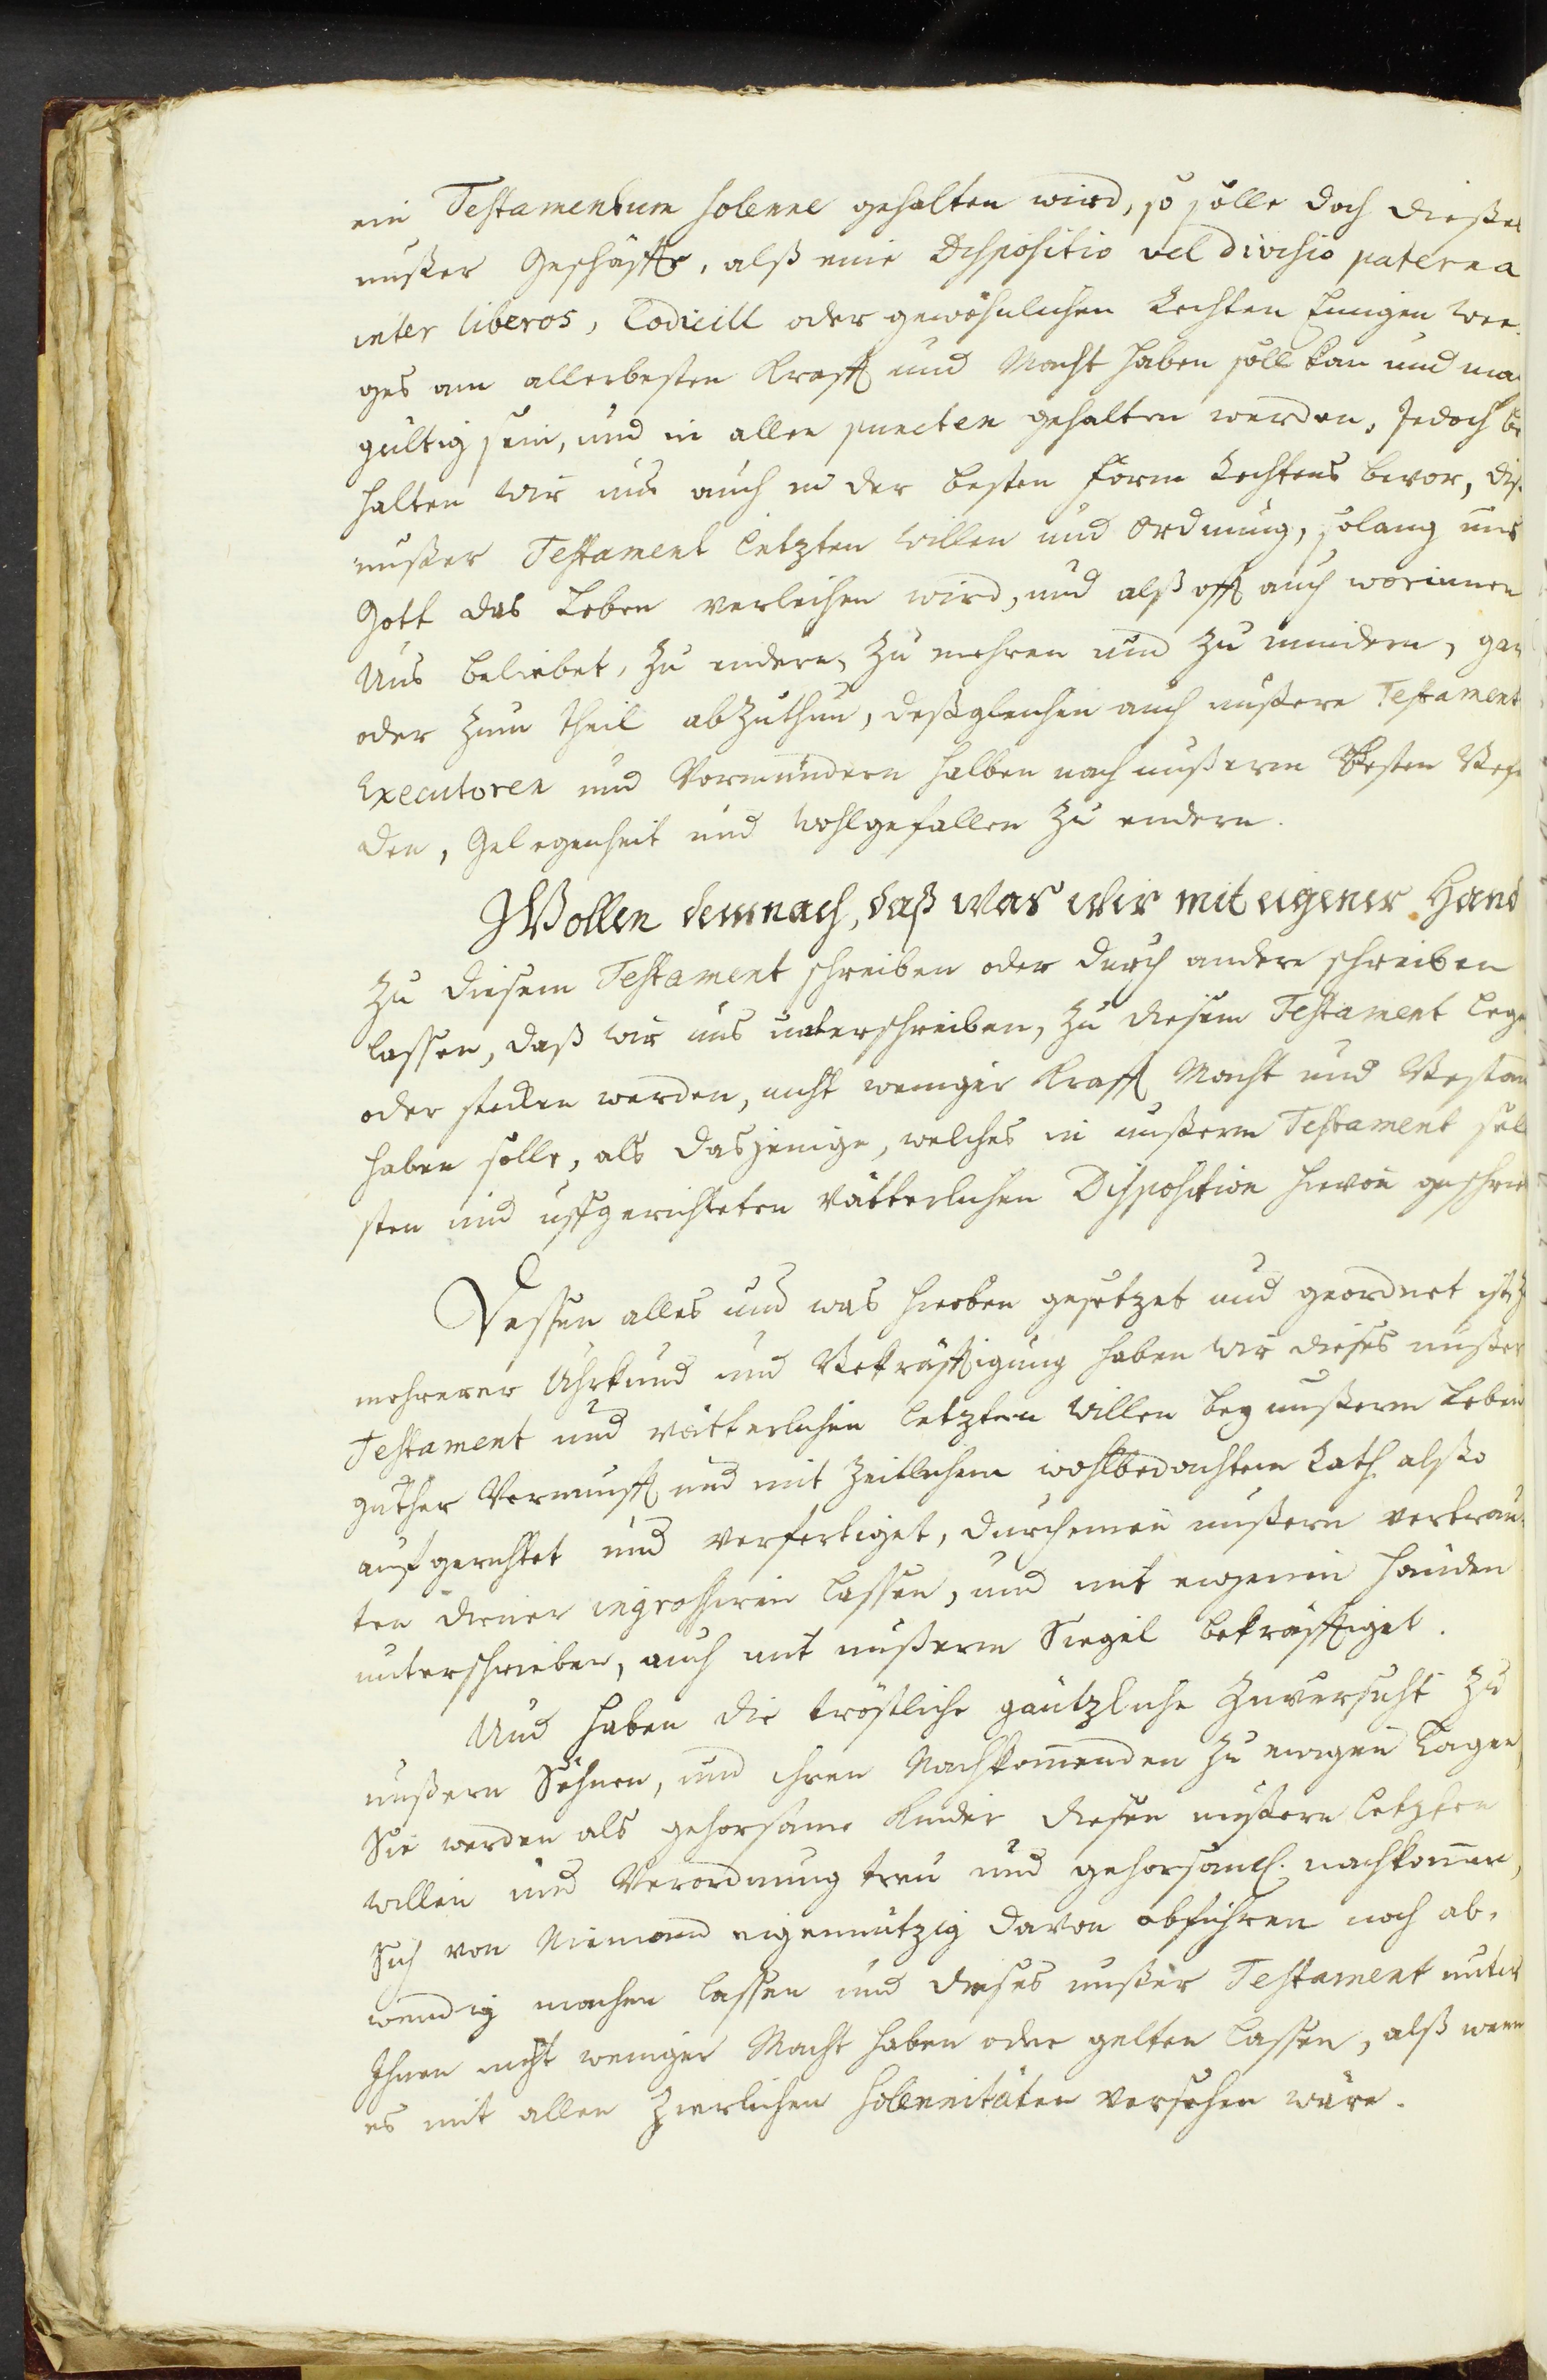 ein Testamentum solenne gehalten wird, so solle doch dießes
unßer Geschäfft, alß eine Dispositio vel divisio paterna
inter liberos, Codicill oder gewöhnlichen Rechten einigen wee-
ges am allerbesten Krafft und Macht haben soll kan und mag
gültig sein, und in allen puncten gehalten werden, Jedoch be
halten wir uns auch in der besten form Rechtens bevor, diß
unßer Testament letzten willen und Ordnung, solang uns
Gott das Leben verleihen wird, und alß offt auch worinnen
Uns beliebet, zu endern, zu mehren und zu mindern, gar
oder zum theil abzuthun, deßgleichen auch unßere Testament
Executoren und Vormündern halben nach unßerm Besten Befin
den, Gelegenheit und Wohlgefallen zu endern.
Wollen demnach, daß was wir mit eigener Hand
zu diesem Testament schreiben oder durch andere schreiben
lassen, daß wir uns unterschreiben, zu diesem Testament lege
oder stecken werden, nicht weniger Krafft Macht und Bestan
haben solle, als dasjenige, welches in unßerm Testament sel
sten und uffgerichteten vätterlichen Disposition hievon geschrie
Dessen alles und was hieoben gesetzet und geordnet ist, z
mehrerer Uhrkund und Bekräfftigung haben wir dieses unßer
Testament und vätterlichen letzten willen bey unßerm Leben
guther Vernunfft und mit zeitlichem wohlbedachtem Rath alßo
aufgerichtet und verfertiget, durch einen unßern vertrau-
ten diener ingrossiren lassen, und mit eigenen Handen
unterschrieben, auch mit unßerm Siegel bekräfftiget.
Und haben die tröstliche gäntzliche Zuversicht zu
unßern Söhnen, und ihren Nachkom̅enden zu ewigen Tagen,
Sie werden als gehorsame Kinder diesen unßern letzten
willen und Verordnung treu und gehorsaml. nachkom̅en,
Sich von Niemand eigennützig davon abführen noch ab-
wendig machen lassen und dieses unßer Testament unter
Ihnen nicht weniger Macht haben oder gelten lassen, alß wenn
es mit allen zierlichen solennitäten versehen wäre.